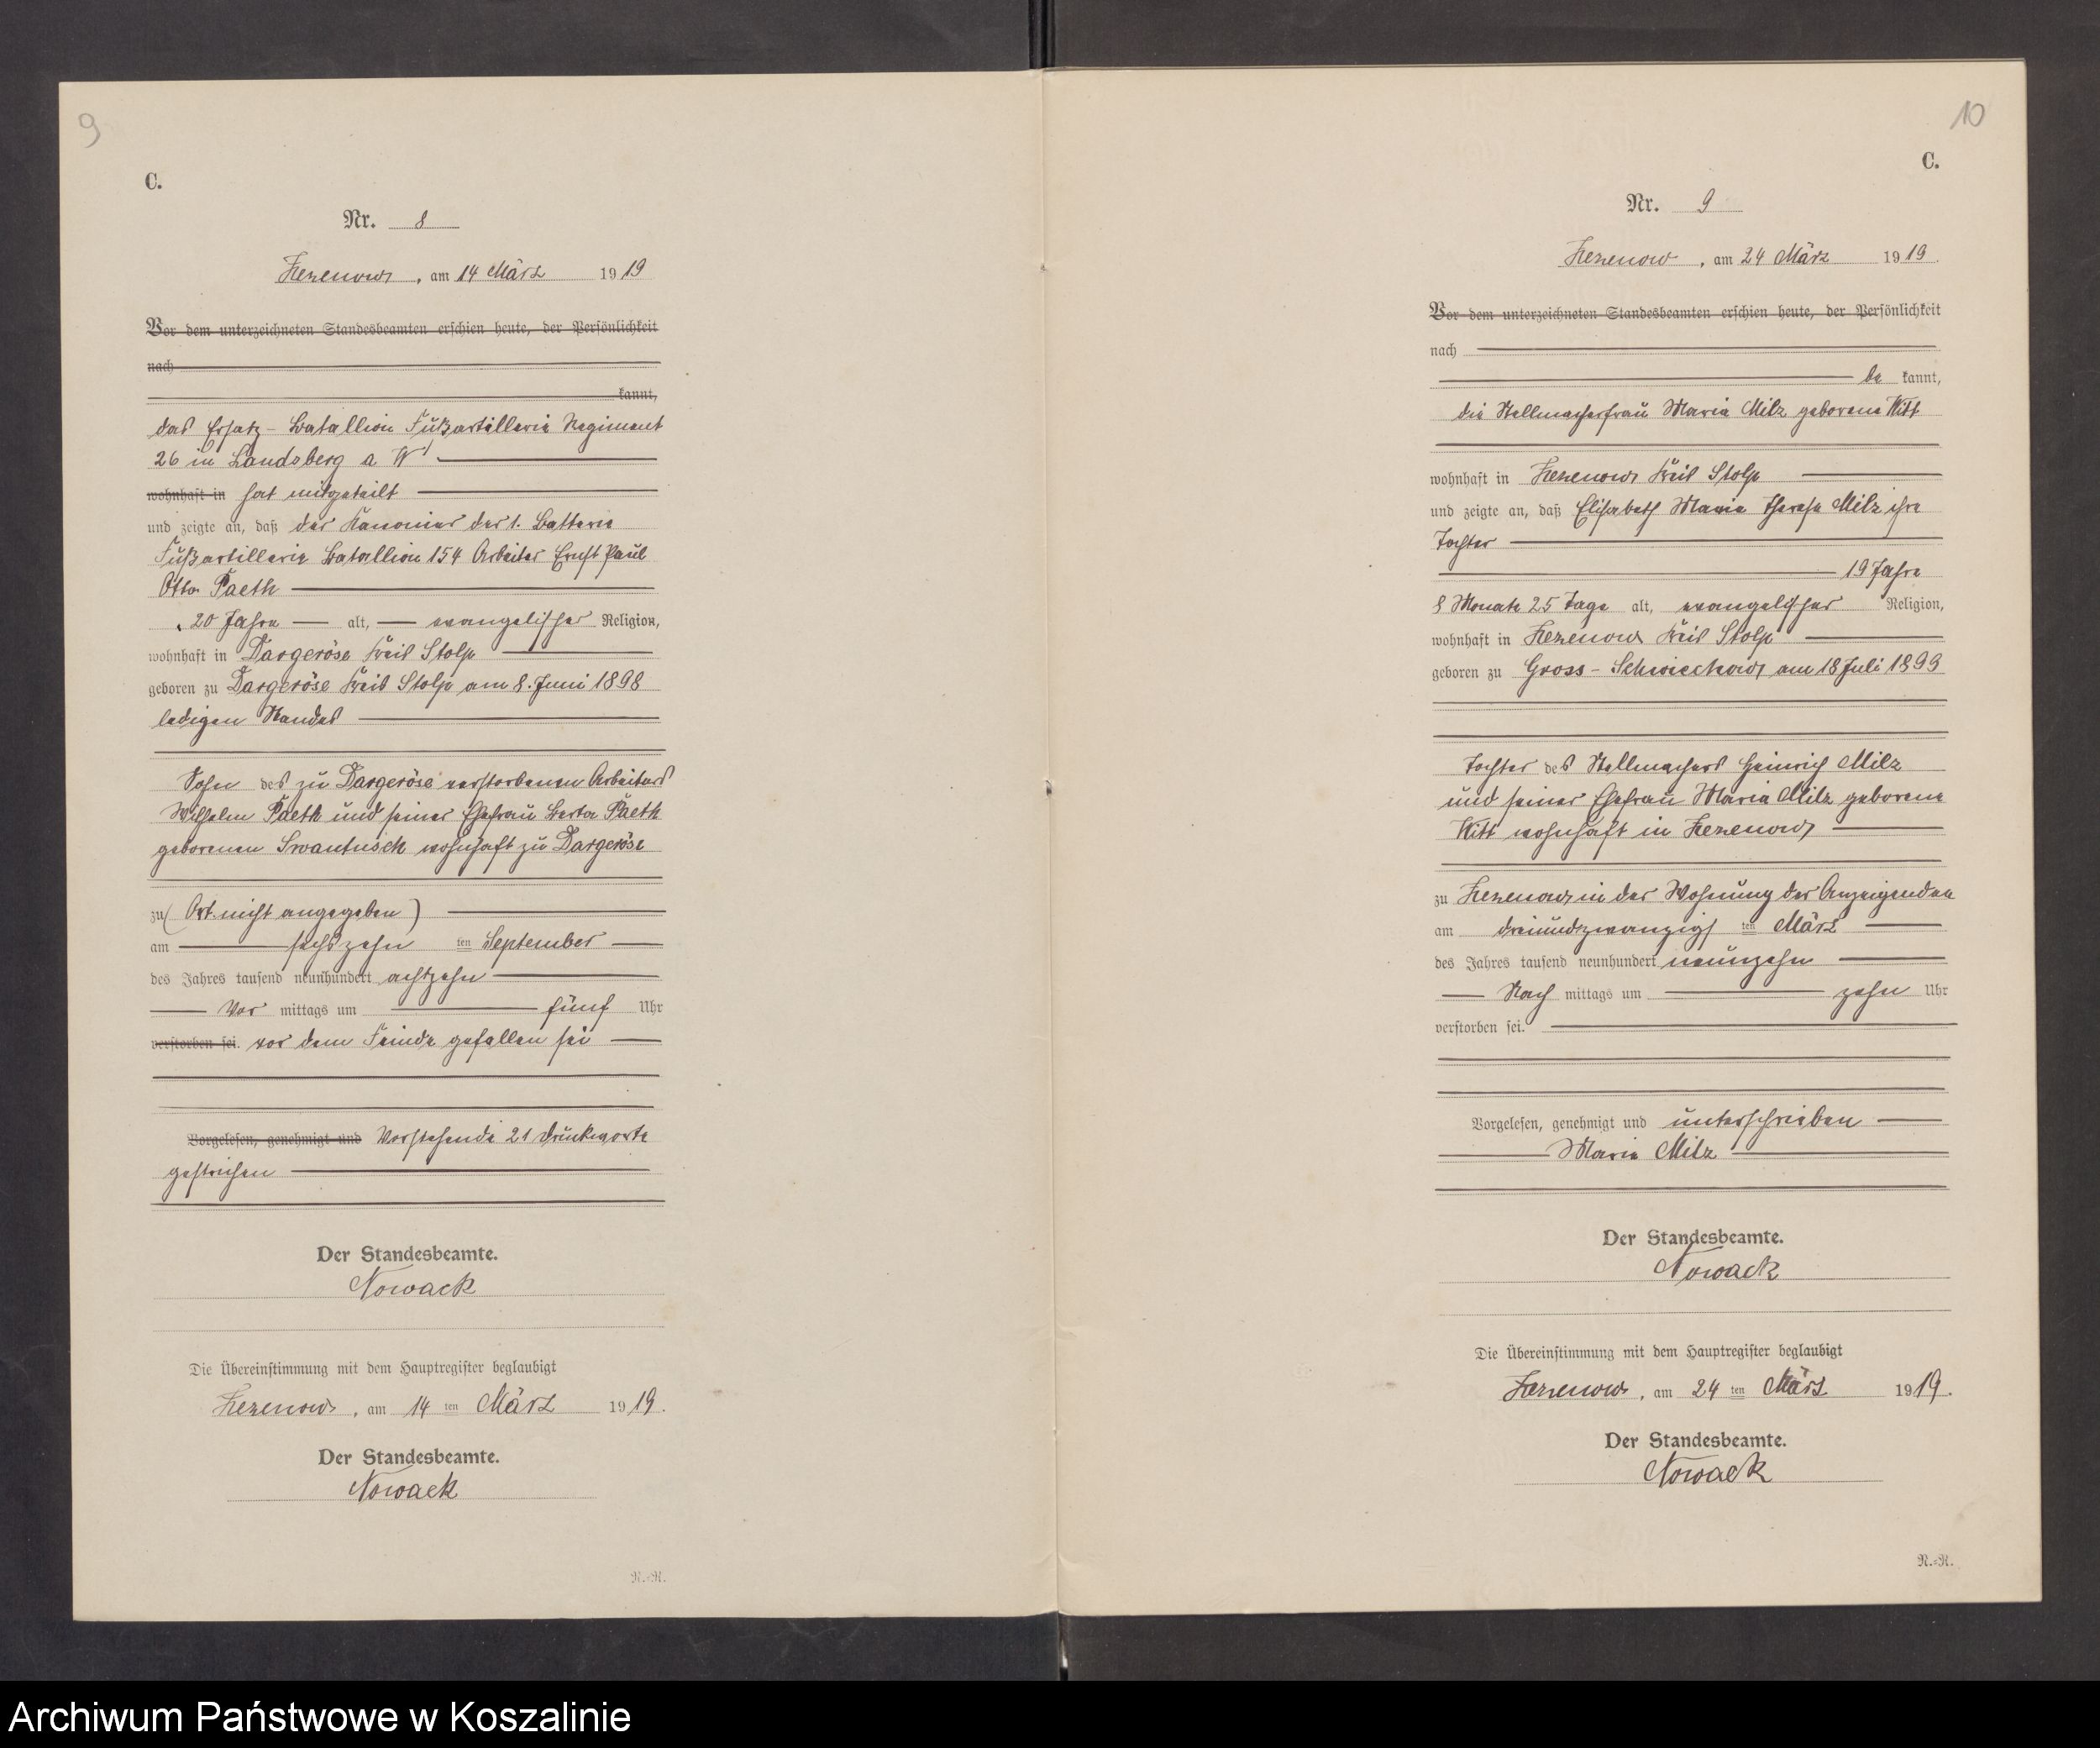 9
C.
Nr. 8
Zezenow, am 14 März 1919
Vor dem unterzeichneten Standesbeamten erschien heute, der Persönlichkeit
nach
kannt,
das Ersatz-Batallion Fußartillerie Regiment
26 in Landsberg a W
wohnhaft in hat mitgeteilt
und zeigte an, daß der Kanonier der 1. Batterie
Fußartillerie Batallion 154 Arbeiter Ernst Paul
Otto Paeth
20 Jahre alt, evangelischer Religion,
wohnhaft in Dargeröse Kreis Stolp
geboren zu Dargeröse Kreis Stolp am 8. Juni 1898
ledigen Standes
Sohn des zu Dargeröse verstorbenen Arbeiters
Wilhelm Paeth und seiner Ehefrau Berta Paeth
geborenen Swantusch wohnhaft zu Dargeröse
zu (Ort nicht angegeben)
am sechszehn ten September
des Jahres tausend neunhundert achtzehn
Vor mittags um fünf Uhr
verstorben sei. vor dem Feinde gefallen sei
Vorgelesen, genehmigt und Vorstehende 21 Druckworte
gestrichen
Der Standesbeamte.
Nowack
Die Übereinstimmung mit dem Hauptregister beglaubigt
Zezenow, am 14 ten März 1919.
Der Standesbeamte.
Nowack
R.-R.
10
C.
Nr. 9
Zezenow, am 24 März 1919.
Vor dem unterzeichneten Standesbeamten erschien heute, der Persönlichkeit
nach
be kannt,
die Stellmacherfrau Maria Milz geborene Witt
wohnhaft in Zezenow Kreis Stolp
und zeigte an, daß Elisabeth Maria Therese Milz ihre
Tochter
19 Jahre
8 Monate 25 Tage alt, evangelischer Religion,
wohnhaft in Zezenow Kreis Stolp
geboren zu Gross-Schwiechow, am 18 Juli 1899
Tochter des Stellmachers Heinrich Milz
und seiner Ehefrau Maria Milz geborene
Witt wohnhaft in Zezenow
zu Zezenow in der Wohnung der Anzeigenden
am dreiundzwanzigsten ten März
des Jahres tausend neunhundert neunzehn
Nach mittags um zehn Uhr
verstorben sei.
Vorgelesen, genehmigt und unterschrieben
Maria Milz
Der Standesbeamte.
Nowack
Die Übereinstimmung mit dem Hauptregister beglaubigt
Zezenow, am 24 ten März 1919.
Der Standesbeamte.
Nowack
R.-R.
Archiwum Państwowe w Koszalinie